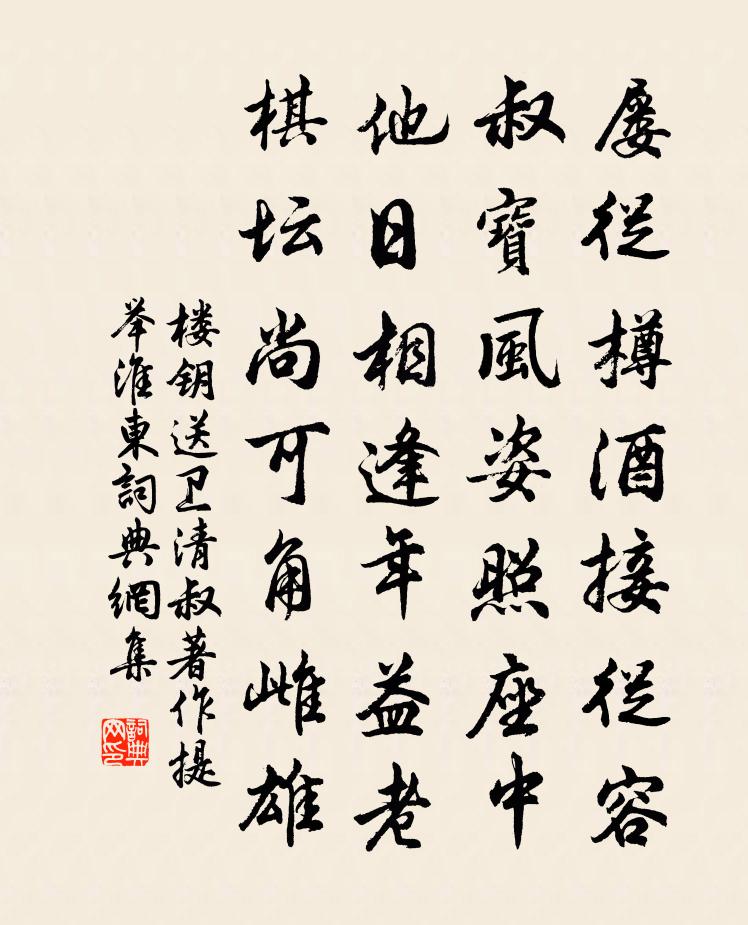 屡從樽酒接從容
叔寶風姿照座中
他日相逢年益老
棋坛尚可角雌雄
楼钥送卫清叔著作提
举淮東詞典網集
詞典網印